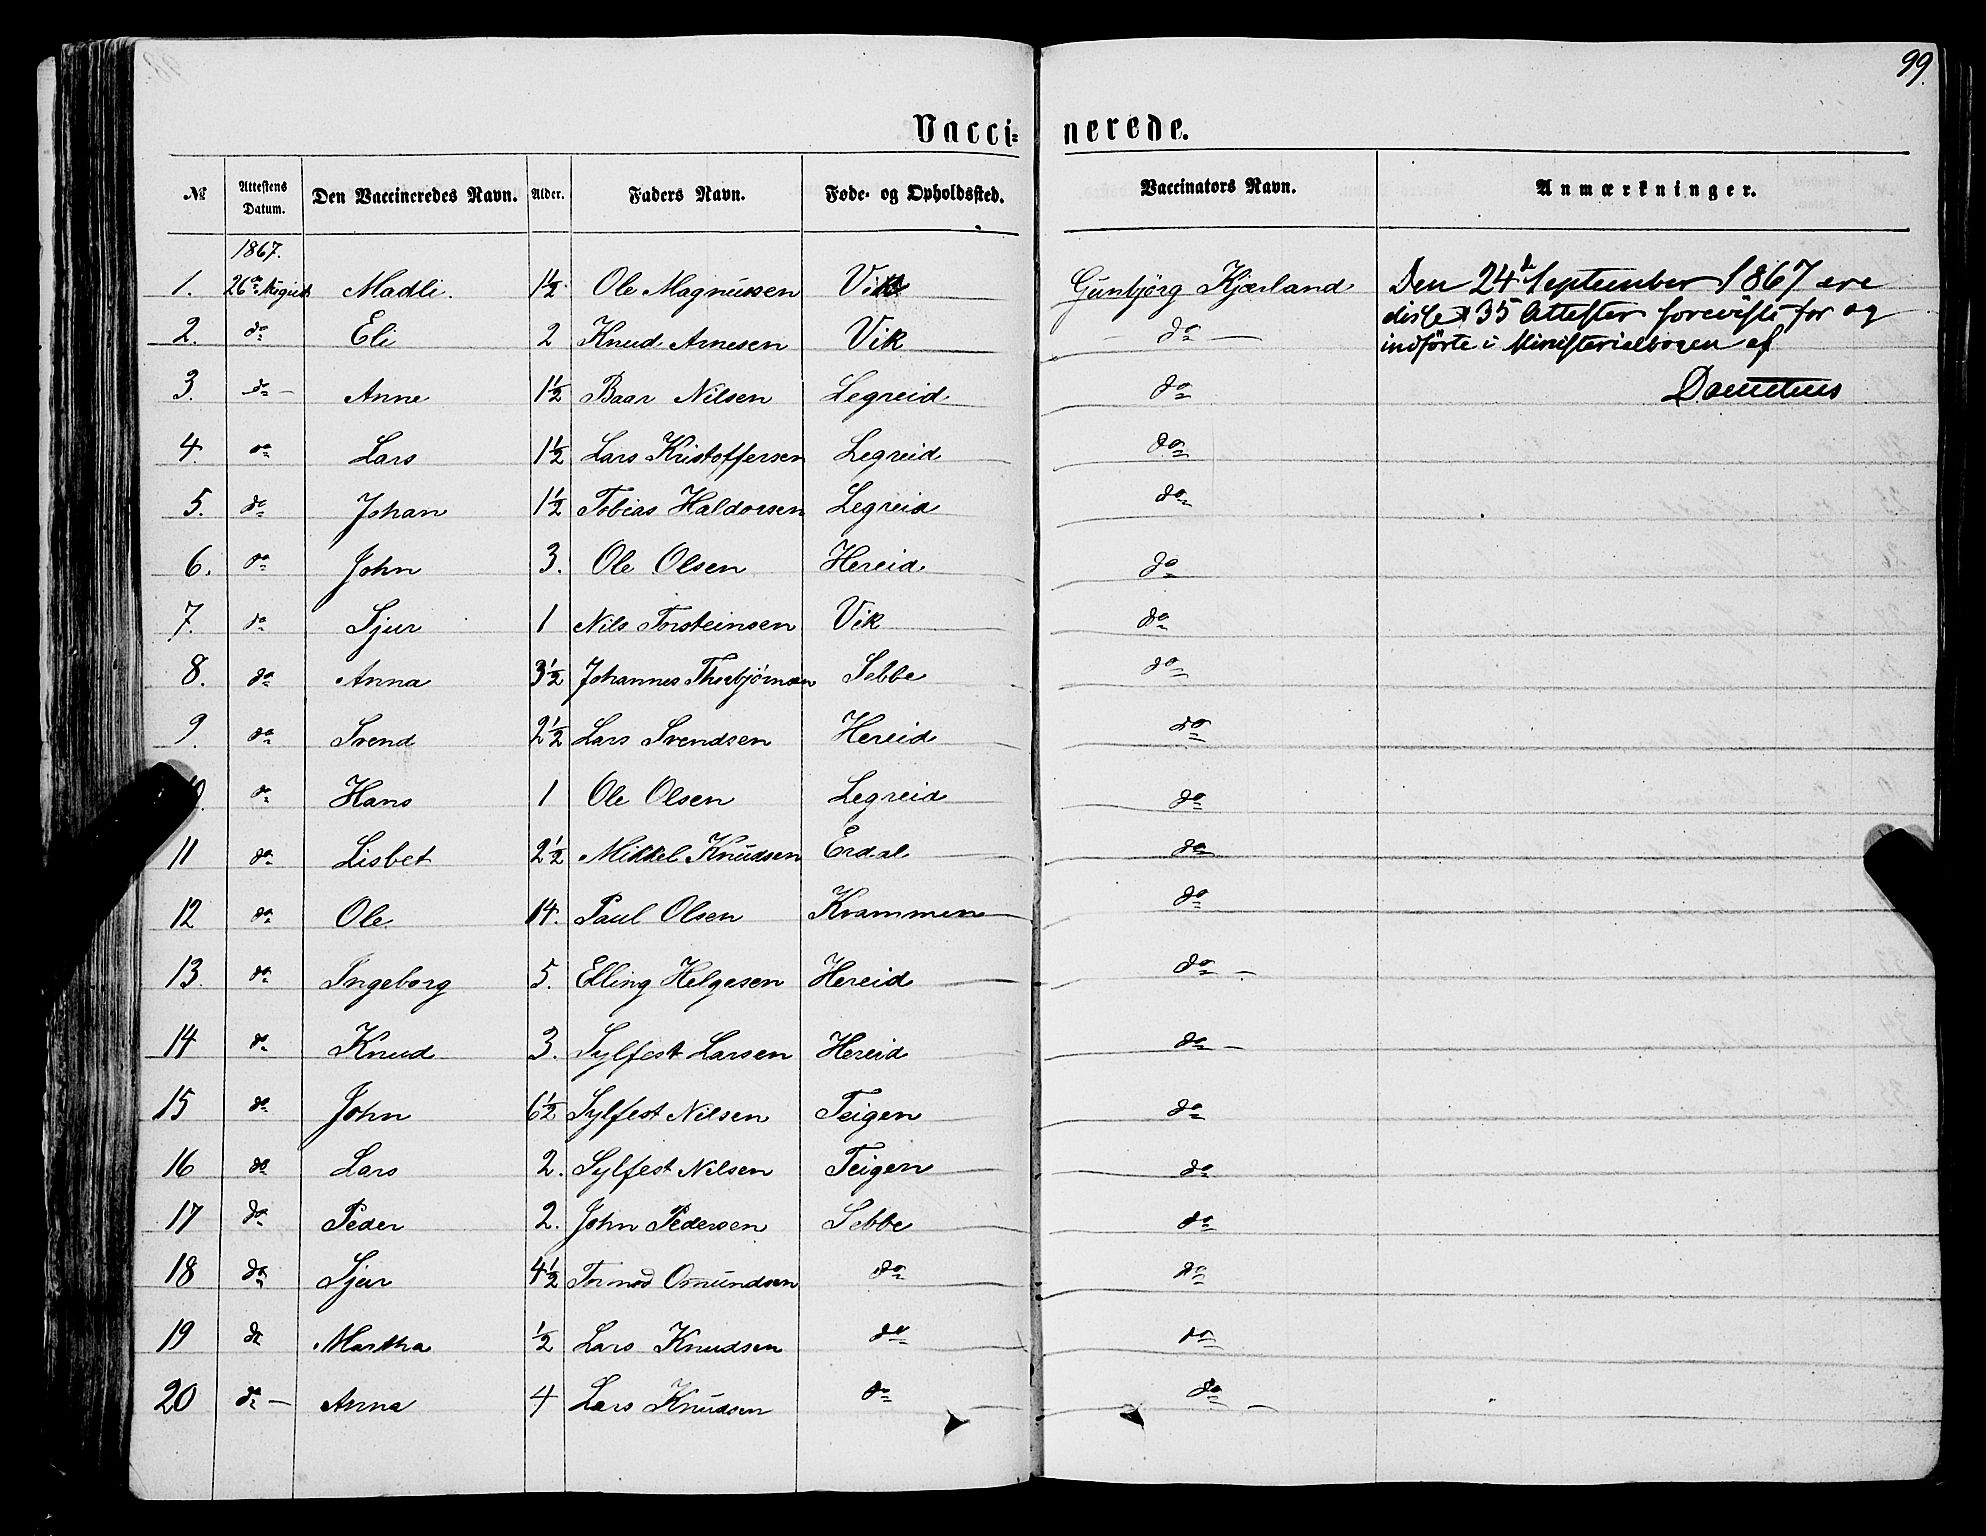 99.
Vacci- nerede.
№ Attestens Datum. Den Vaccineredes Navn. Alder. Faders Navn. Føde- og Opholdssted. Vaccinators Navn. Anmærkninger.
1867.
1. 26de August Madli. 1½ Ole Magnussen Vik Gunbjörg Kjærland Den 24de September 1867 ere
disse 35 Attester foreviste for og
2. do Eli 2 Knud Arnesen Vik do indførte i Ministerialbogen af
3. do Anne 1½ Baar Nilsen Legreid do
4. do Lars 1½ Lars Kristoffersen Legreid do
5. do Johan 1½ Tobias Haldorsen Legreid do
6. do John 3. Ole Olsen Hereid do
7. do Sjur 1 Nils Torsteinsen Vik do
8. do Anna 3½ Johannes Thorbjörnsen Sebbe do
9. do Svend 2½ Lars Svendsen Hereid do
do Hans 1 Ole Olsen Legreid do
11 do Lisbet 2½ Mikkel Knudsen Erdal do
12 do Ole 14. Paul Olsen Krammen do
13. do Ingeborg 5. Elling Helgesen Hereid do
14 do Knud 3. Sylfest Larsen Hereid do
15 do John 6½ Sylfest Nilsen Teigen do
16 do Lars 2. Sylfest Nilsen Teigen do
17 do Peder 2. John Pedersen Sebbe do
18 do Sjur 4½ Tormod Omundsen do do
19 do Martha ½ Lars Knudsen do do
20 do Anna 4 Lars Knudsen do do